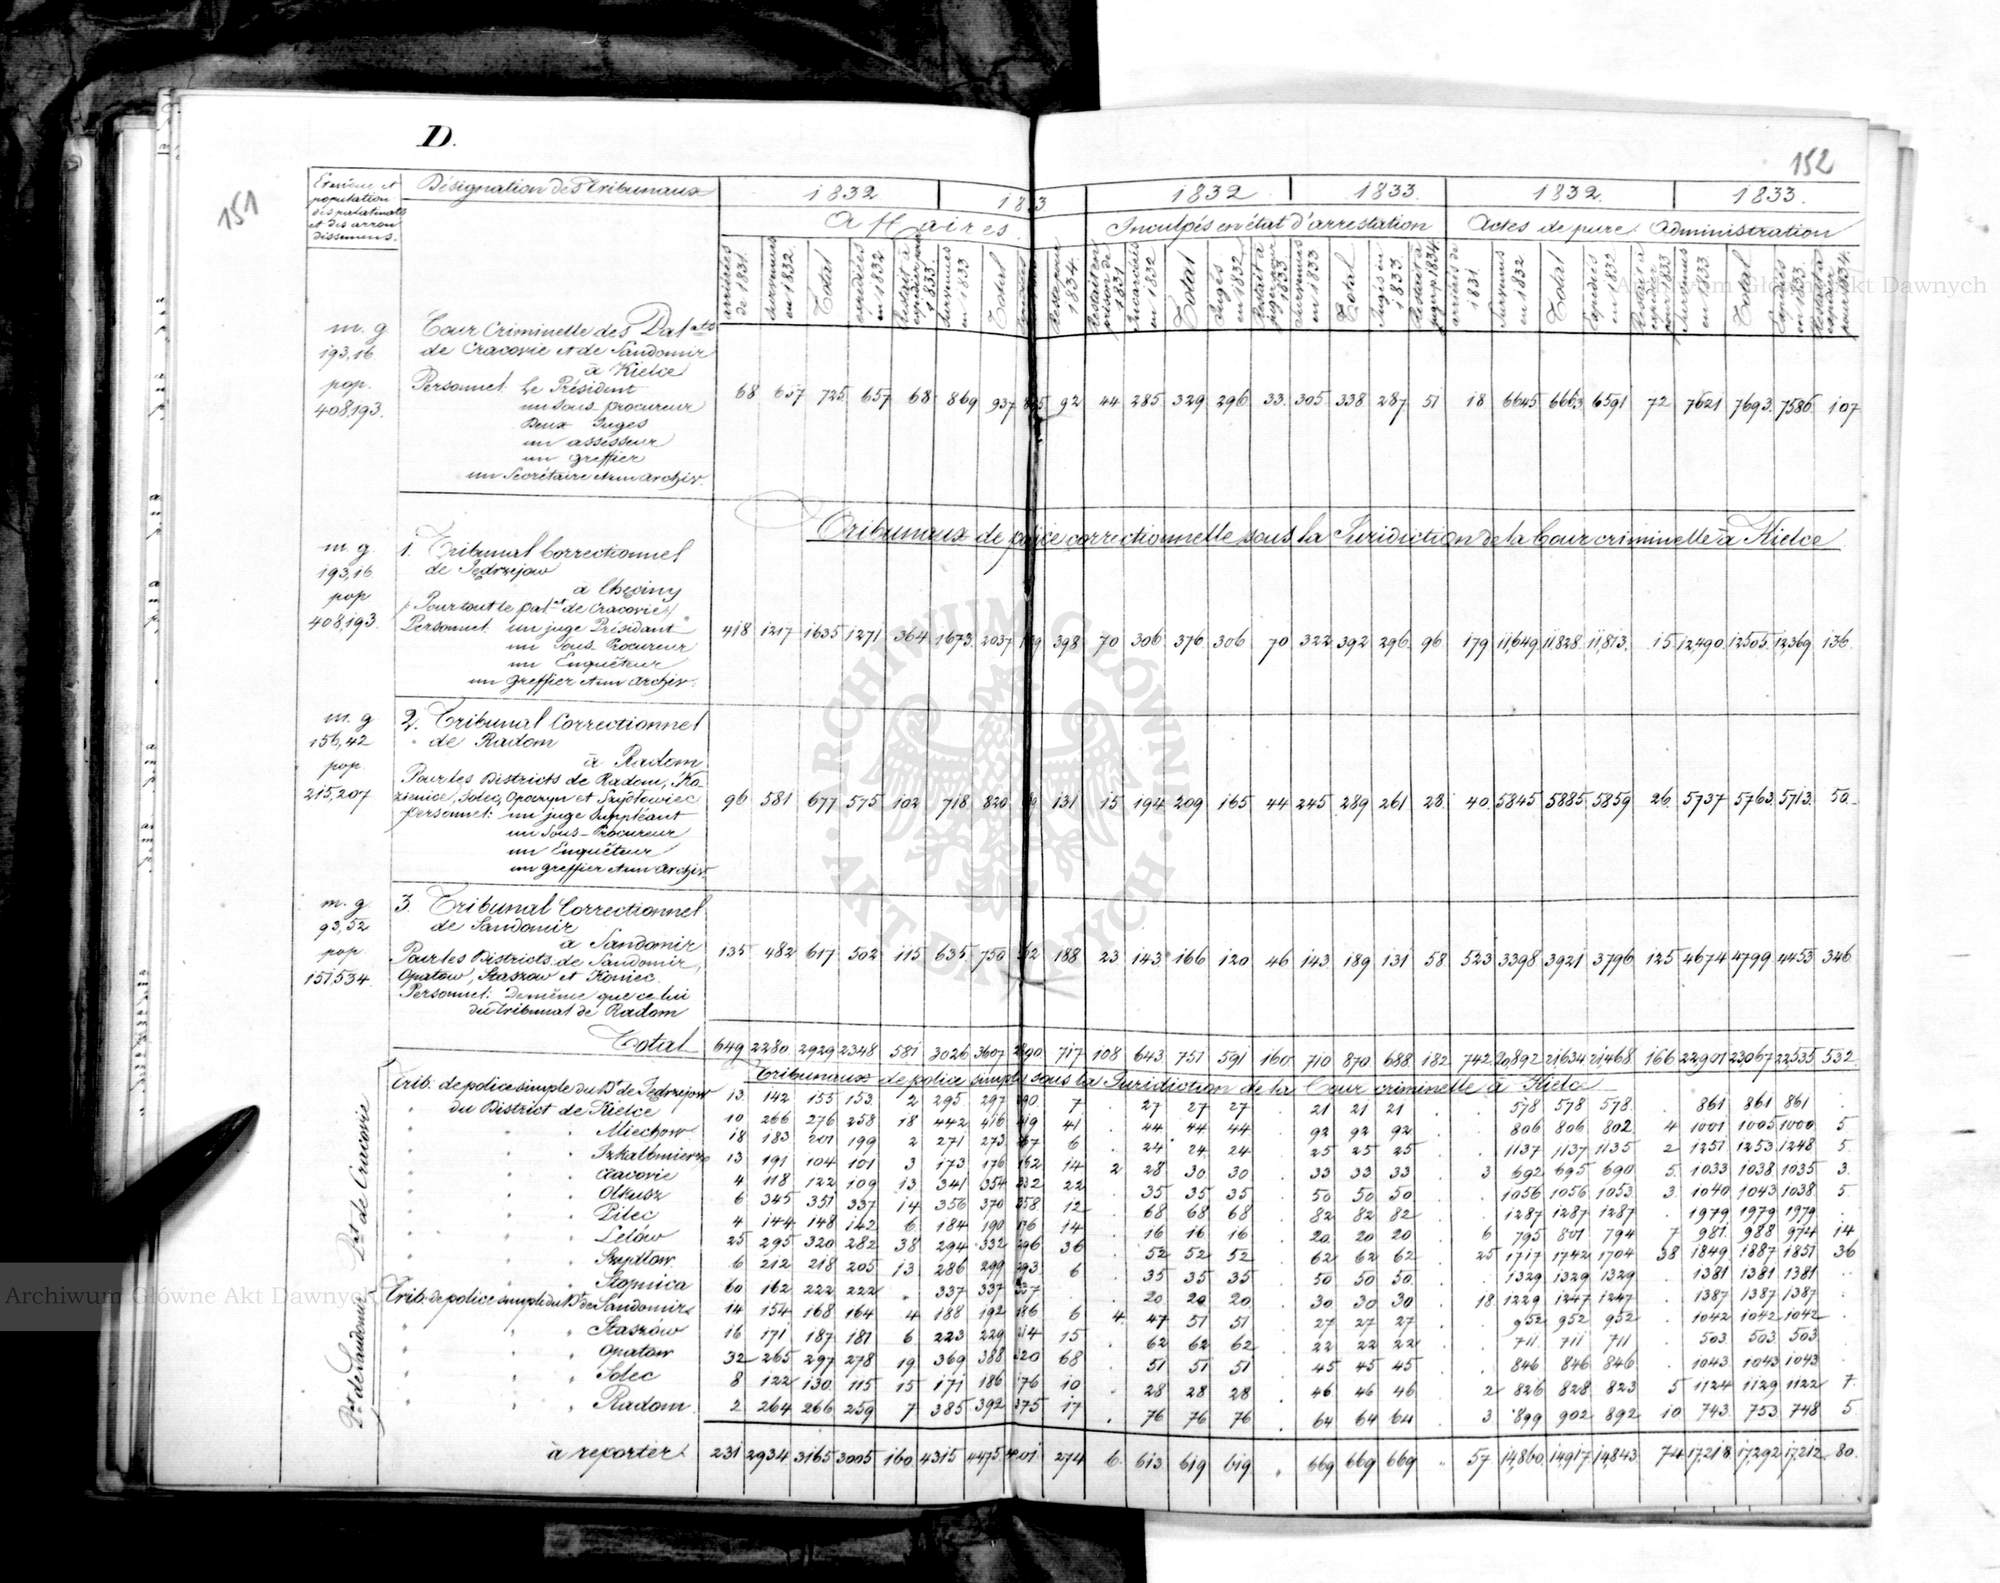 D.
151
152
Etendue et population des palatinats et des arrondissemens.
Désignation des tribunaux
1832
1833
1832
1833
1832
1833.
Affaires
Inculpés en état d'arrestation
Actes de pure Administration
arriérées de 1831.
survenues en 1832.
Total
expédiées en 1832
Restait à expédier pour 1833.
Survenues en 1833
Total
Reste pour 1834.
Restait en prison de 1831
Incarcérés en 1832
Total
Jugés en 1832
Restait à juger pour 1833.
Survenues en 1833
Total
Jugés en 1833
Restait à juger p. 1834
arriérés de 1831.
Survenus en 1832
Total
Expédiés en 1832
Restait à expédier pour 1833
Survenus en 1833.
Total
Expédiés en 1833.
Restait à expédier pour 1834.
m. g.
193,16
pop.
408,193.
Cour Criminelle des Palats
de Cracovie et de Sandomir
à Kielce
Personnel. Le Président
un sous procureur
Deux Juges
un assesseur
un greffier
un Secrétaire et un archiv.
68 657 725 657 68 869 937 92 44 285 329 296 33. 305 338 287 51 18 6645 6663 6591 72 7621 7693. 7586 107
Tribunaux de police correctionnelle sous la Juridiction de la Cour criminelle à Kielce
m. g.
193,16
pop
408,193.
1. Tribunal Correctionnel
de Jędrzejow
à Chęciny
/Pour tout le palat de Cracovie/
Personnel. un juge Président
un Sous Procureur
un Enquêteur
un greffier et un archiv.
418 1217 1635 1271 364 1673. 2037 398 70 306 376 306 70 322 392 296 96 179 11,649 11,828 11,813. 15 12,490. 12505. 12,369 136.
m. g
156,42
pop.
215,207
2. Tribunal Correctionnel
de Radom
à Radom
Pour les Districts de Radom, Ko-
zienice, Solec, Opoczyn et Szydłowiec
Personnel: un juge Suppléant
un Sous-Procureur
un Enquêteur
un greffier et un archiv.
96 581 677 575 102 718 820 131 15 194 209 165 44 245 289 261 28. 40. 5845 5885 5859 26. 5737 5763. 5713. 50.
m. g.
93,52
pop.
151,534.
3. Tribunal Correctionnel
de Sandomir
à Sandomir
Pour les Districts de Sandomir,
Opatow, Staszow et Koniec.
Personnel: De même que celui
du tribunal de Radom
135 482 617 502 115 635 750 188 23 143 166 120 46 143 189 131 58 523 3398 3921 3796 125 4674 4799 4453 346
Total 649 2280. 2929 2348 581 3026 3607 2890. 717 108 643 751 591 160. 710 870 688. 182 742 20,892 21,634 21,468 166 22,901 23,067 22,535 532
Tribunaux de police simple sous la Juridiction de la Cour criminelle à Kielce
Pat. de Cracovie
Trib. de police simple du Dt de Jędrzejow 13. 142 155 153. 2 295 297 290 7 27 27 27 21 21 21 578 578 578. 861 861 861
du District de Kielce 10 266 276 258 18 442 460 419 41 44 44 44 92 92 92 806 806 802 4 1001 1005 1000 5
Miechow 18 183 201 199 2 271 273 267 6 24 24 24 25 25 25 1137 1137 1135 2 1251 1253 1248 5.
Szkalbmierz 13 191 104 101 3 173 176 162 14 2 28 30 30 33 33 33 3 692 695 690 5. 1033 1038 1035 3.
Cracovie 4 118 122 109 13 341 354 332 22 35 35 35 50 50 50 1056 1056 1053 3. 1040 1043 1038 5.
Olkusz 6 345 351 337 14 356 370 358 12 68 68 68 82 82 82 1287 1287 1287 1979 1979 1979
Pilec 4 144 148 142 6 184 190 176 14 16 16 16 20 20 20 6 795 801 794 7 981 988 974 14
Lelów 25 295 320 282 38 294 332 296 36 52 52 52 62 62 62 25 1717 1742 1704 38 1849 1887 1851 36
Szydłow 6 212 218 205 13 286 299 293 6 35 35 35 50 50 50 1329 1329 1329 1381 1381 1381
Stopnica 60 162 222 222 337 337 337 20 20 20 30 30 30 18 1229 1247 1247 1387 1387 1387
Pat. de Sandomir
Trib. de police simple du Dt de Sandomir 14 154 168 164 4 188 192 186 6 4 47 51 51 27 27 27 952 952 952 1042 1042 1042
Staszów 16 171 187 181 6 223 229 214 15 62 62 62 22 22 22 711 711 711 503 503 503
Opatow 32 265 297 278 19 369 388 320 68 51 51 51 45 45 45 846 846 846 1043 1043 1043
Solec 8 122 130 115 15 171 186 176 10 28 28 28 46 46 46 2 826 828 823 5 1124 1129 1122 7
Radom 2 264 266 259 7 385 392 375 17 76 76 76 64 64 64 3 899 902 892 10 743. 753. 748 5
à reporter 231 2934 3165 3005 160 4315 4475 4201. 274 6. 613 619 619 669 669 669 57 14,860. 14,917 14,843. 74 17,218 17,292 17,212 80.
Archiwum Główne Akt Dawnych
Archiwum Główne Akt Dawnych
ARCHIWUM GŁÓWNE · AKT DAWNYCH ·